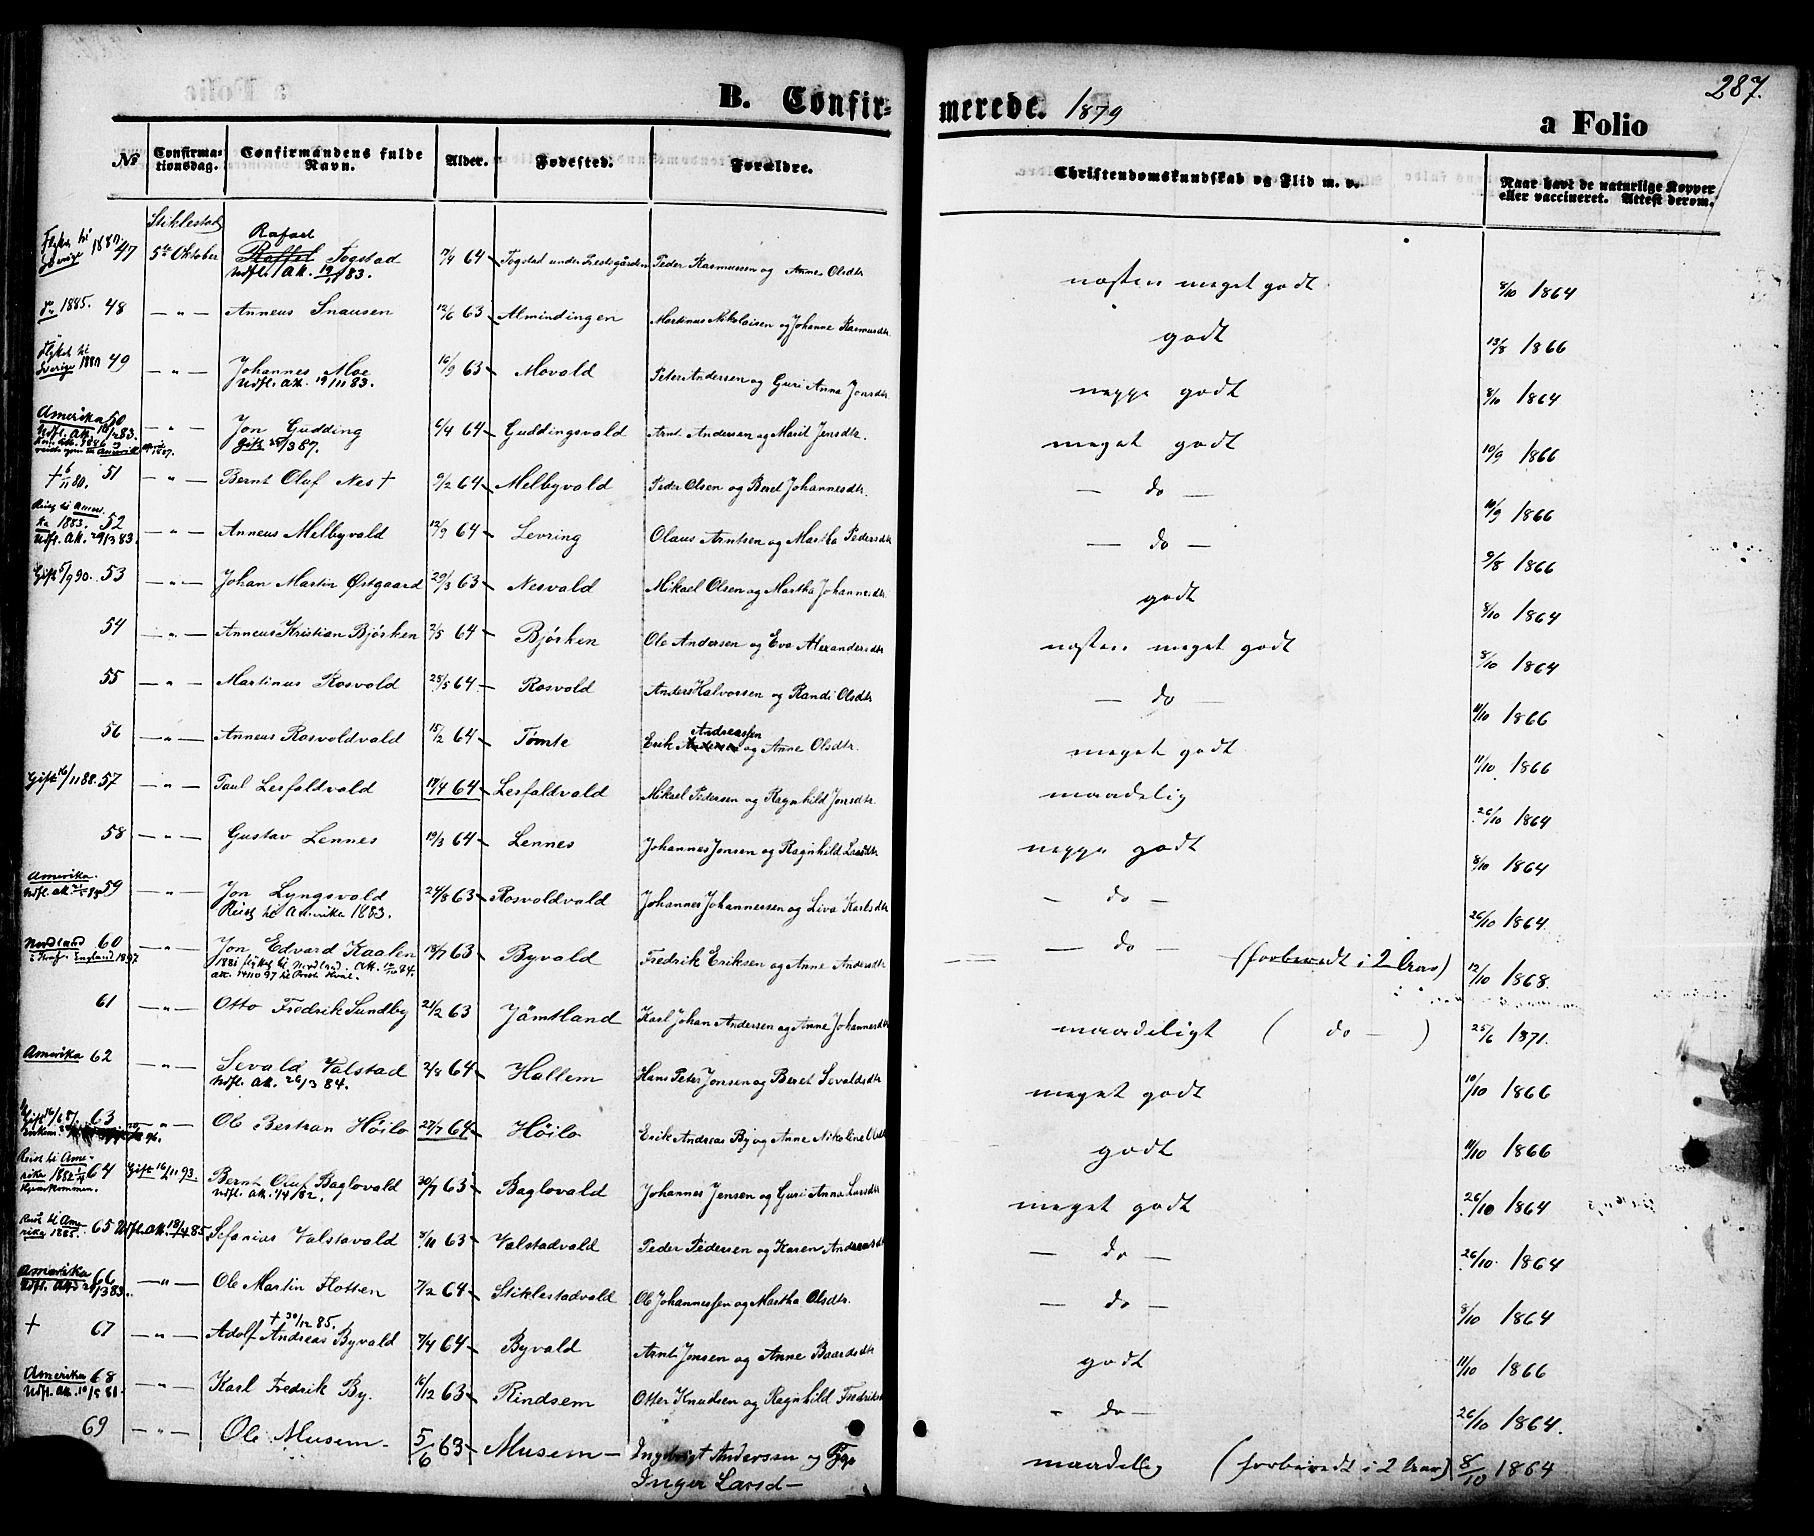 287.
B. Confirmerede. 1879
a Folio
No Confirmationsdag. Confirmandens fulde Navn. Alder. Fødested. Forældre. Christendomskundskab og Flid m. v. Naar havt de naturlige Kopper eller vaccineret. Attest derom.
Stiklestad
Rafael
Flyttet til Sverige 1880 47 5te Oktober Raffel Togstad 7/4 64 Togstad under Leslegården Peder Rasmussen og Anne Olsdtr næsten meget godt 8/10 1864
Udfl. Ak. 83.
do 1885. 48 — " — Anneus Snausen 12/6 63 Almindingen Martinus Nikolaisen og Johanne Rasmusdtr godt 13/8 1866
Flyttet til Sverige 1880 49 — " — Johannes Moe 16/9 63 Movald Peter Andersen og Guri Anna Jonsdtr neppe godt 8/10 1864
Udfl. Ak. 19/11 83.
Amerika 50 — " — Jon Gudding 6/4 64 Guddingsvald Arnt Andersen og Marit Jensdtr. meget godt 10/9 1866
Udfl. Ak. 83. gift 3 87.
† 6/11 80. 51 — " — Bernt Oluf Nes † 9/2 64 Melbyvald Peder Olsen og Beret Johannesdtr. — do — 10/9 1866
Reist til Amerika 1883. 52 — " — Anneus Melbyvald 12/9 64 Levring Olaus Arntsen og Martha Pedersdtr — do — 9/8 1866
Udfl. Ak. 29/3 83.
Gift 5/9 90. 53 — " — Johan Martin Østgaard 29/3 63 Nesvald Mikael Olsen og Martha Johannesdtr godt 8/10 1864
54 — " — Anneus Kristian Bjørken 2/5 64 Bjørken Ole Andersen og Eva Alexandersdtr næsten meget godt 8/10 1864
55 — " — Martinus Rosvold 28/5 64 Rosvold Anders Halvorsen og Randi Olsdtr — do — 11/10 1866
56 — " — Anneus Rosvoldvald 15/2 64 Tømte Erik Andersen Andreassen og Anne Olsdtr. meget godt 11/10 1866
Gift 16/11 88. 57 — " — Paul Lesfaldvald 17/4 64 Lesfaldvald Mikael Pedersen og Ragnhild Jonsdtr. maadelig 26/10 1864
58 — " — Gustav Lennes 19/3 64 Lennes Johannes Jonsen og Ragnhild Larsdtr neppe godt 8/10 1864
Amerika. 59 — " — Jon Lyngsvald 24/8 63 Rosvoldvald Johannes Johannessen og Liva Karlsdtr — do — 26/10 1864.
Reist til Amerika 1883.
Nordland 60 — " — Jon Edvard Kaalen 18/7 63 Byvald Fredrik Eriksen og Anne Andersdtr — do — (forberedt i 2 Aar) 12/10 1868.
England 1897 1881 flyttet til Nordland. Ak. 84.
61 — " — Otto Fredrik Sundby 21/2 63 Jämtland Karl Johan Andersen og Anne Johannesdtr maadeligt ( do — ) 25/6 1871.
Amerika 62 — " — Sevald Valstad 2/8 64 Hallem Hans Peter Jonsen og Beret Sevaldsdtr meget godt 10/10 1866
Udfl. Ak. 26/3 84.
Gift 16/6 87. 63 — " — Ole Bertran Höilo 27/7 64 Höilo Erik Andreas By og Anne Nikoline godt 11/10 1866
Reist til Amerika 1882 64 Gift 16/11 93. Bernt Oluf Baglovald 30/7 63 Baglovald Johannes Jensen og Guri Anna Larsdtr meget godt 26/10 1864
Hjemkommen. Udfl. Ak. 1/4 82.
Reist til Amerika 1885. 65 Udfl. Ak. 18/4 85 Sefanias Valstavald 8/11 63 Valstadvald Peder Pedersen og Karen Andreasdtr — do — 26/10 1864
Amerika 66 — " — Ole Martin Flotten 7/2 64 Stiklestadvald Ole Johannessen og Martha Olsdtr. — do — 8/10 1864
† 30/12 85.
† 67 — " — Adolf Andreas Byvald 7/4 64 Byvald Arnt Jonsen og Anne Baardsdtr godt 11/10 1866
Amerika 68 — " — Karl Fredrik By. 16/12 63 Rindsem Otter Knudsen og Ragnhild Fredriksd — do — 26/10 1864.
Udfl. Ak. 10/5 81
69 — " — Ole Musem 5/6 63 Musem Ingebrigt Anderssen og maadelig (forberedt i 2 Aar) 8/10 1864
Inger Larsd